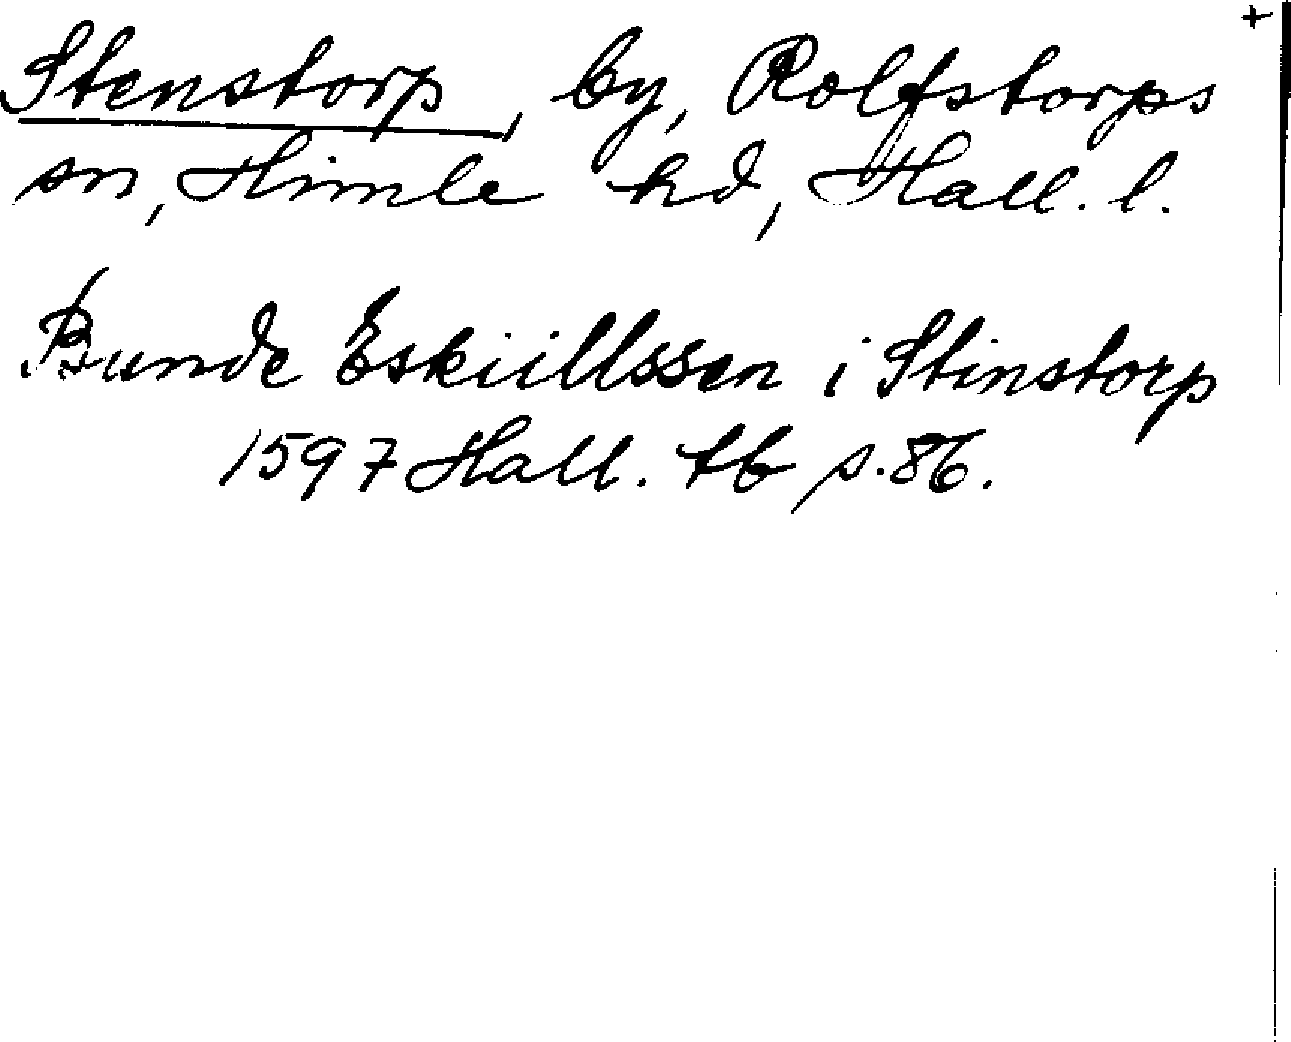 Stenstorp, by, Rolfstorps +
sn, Himle hd, Hall. l.
Bunde Eskiillssen i Stinstorp
1597 Hall. tb s. 86.